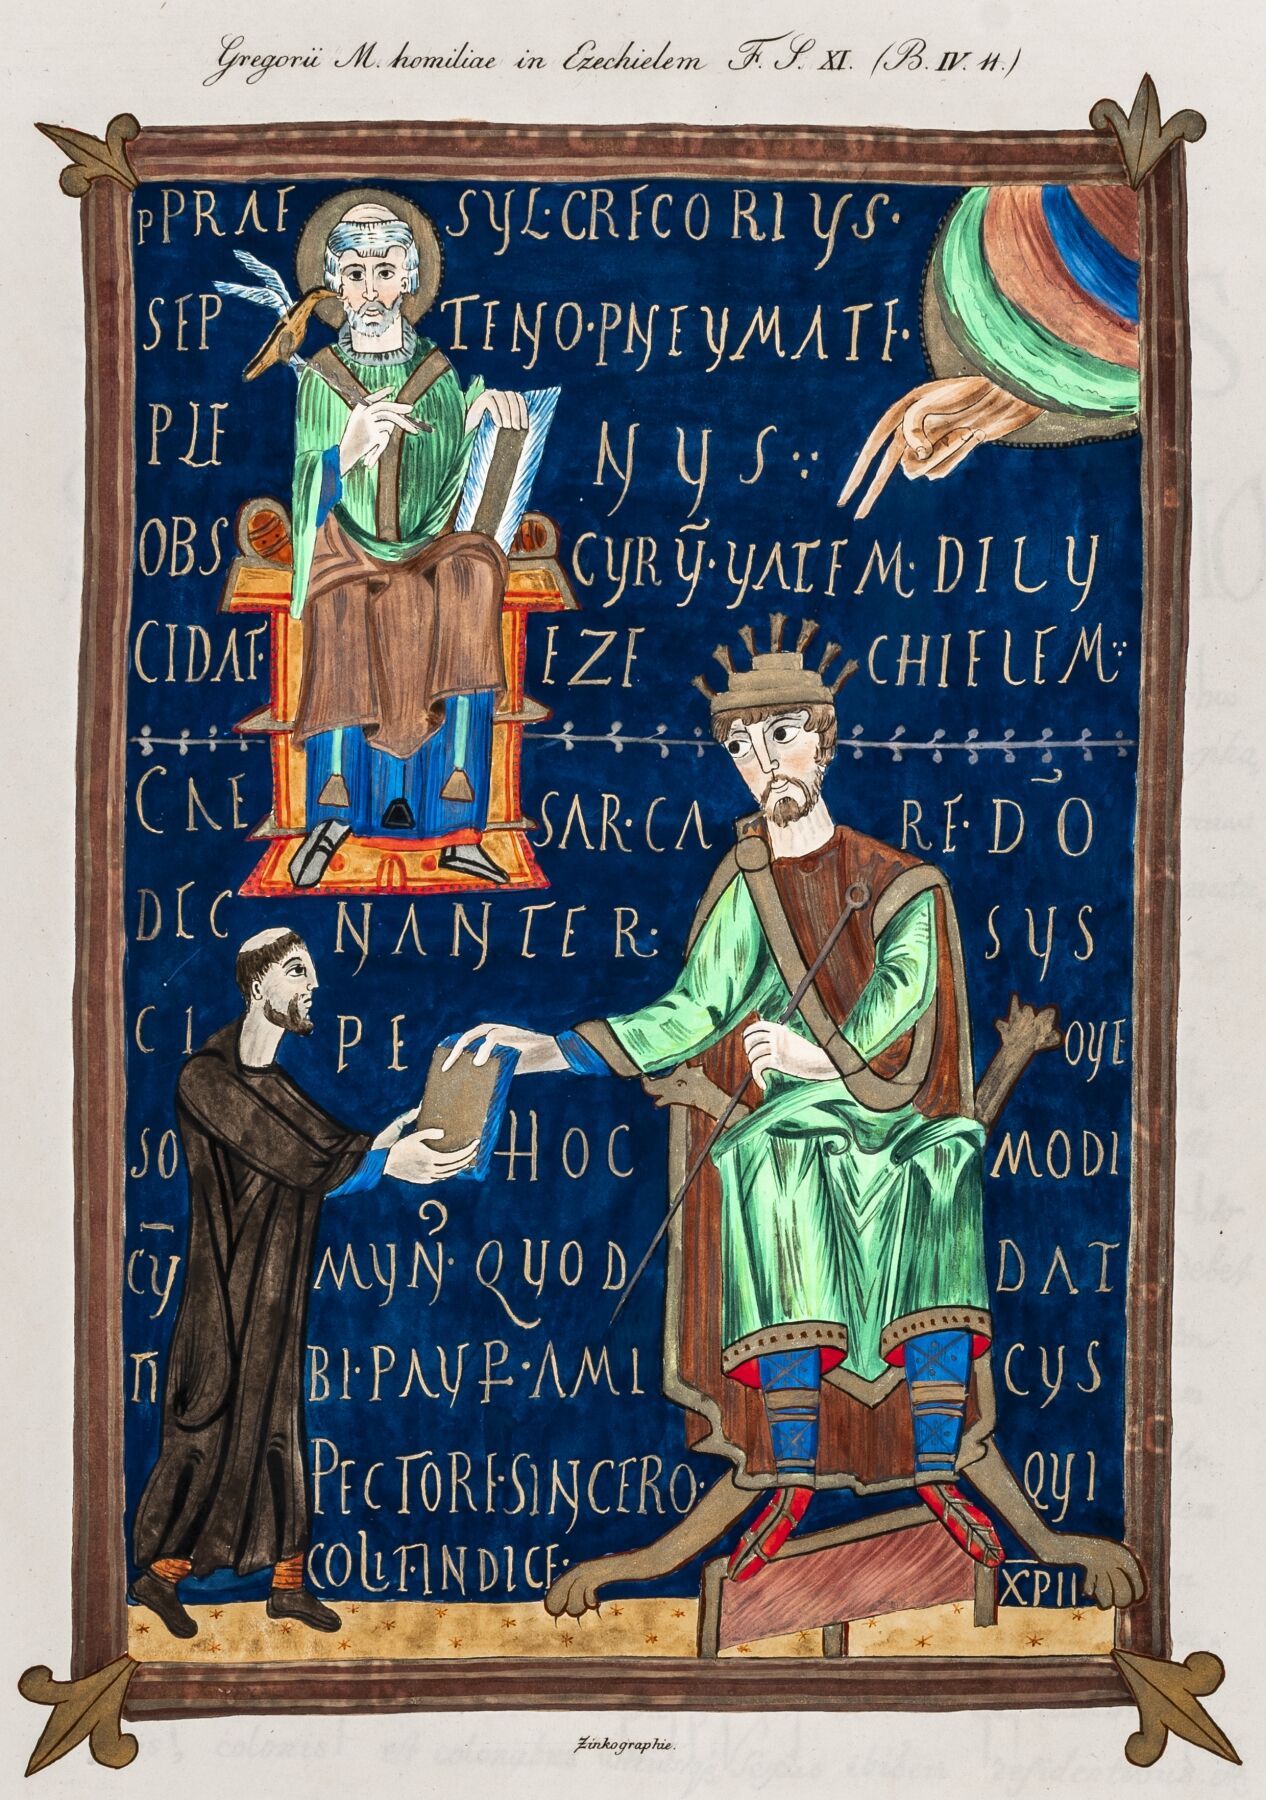 Gregorii M. homiliae in Ezechielem F. S. XI. (B. IV. 11.)
PPRAESYL·GREGORIYS·
SEPTENO·PNEYMATE·
PLENYS
OBSCYRỸ·YATEM·DILY
CIDAT·EZECHIELEM
CAESAR·CARE·DŌ
DECNANTER·SYS
CIPEOYE
SOHOCMODI
CYMYN·QUODDAT
TIBI·PAYP·AMICYS
PECTORE·SINCERO·QYI
COLIT·INDICE·XPII
Zinkographie.